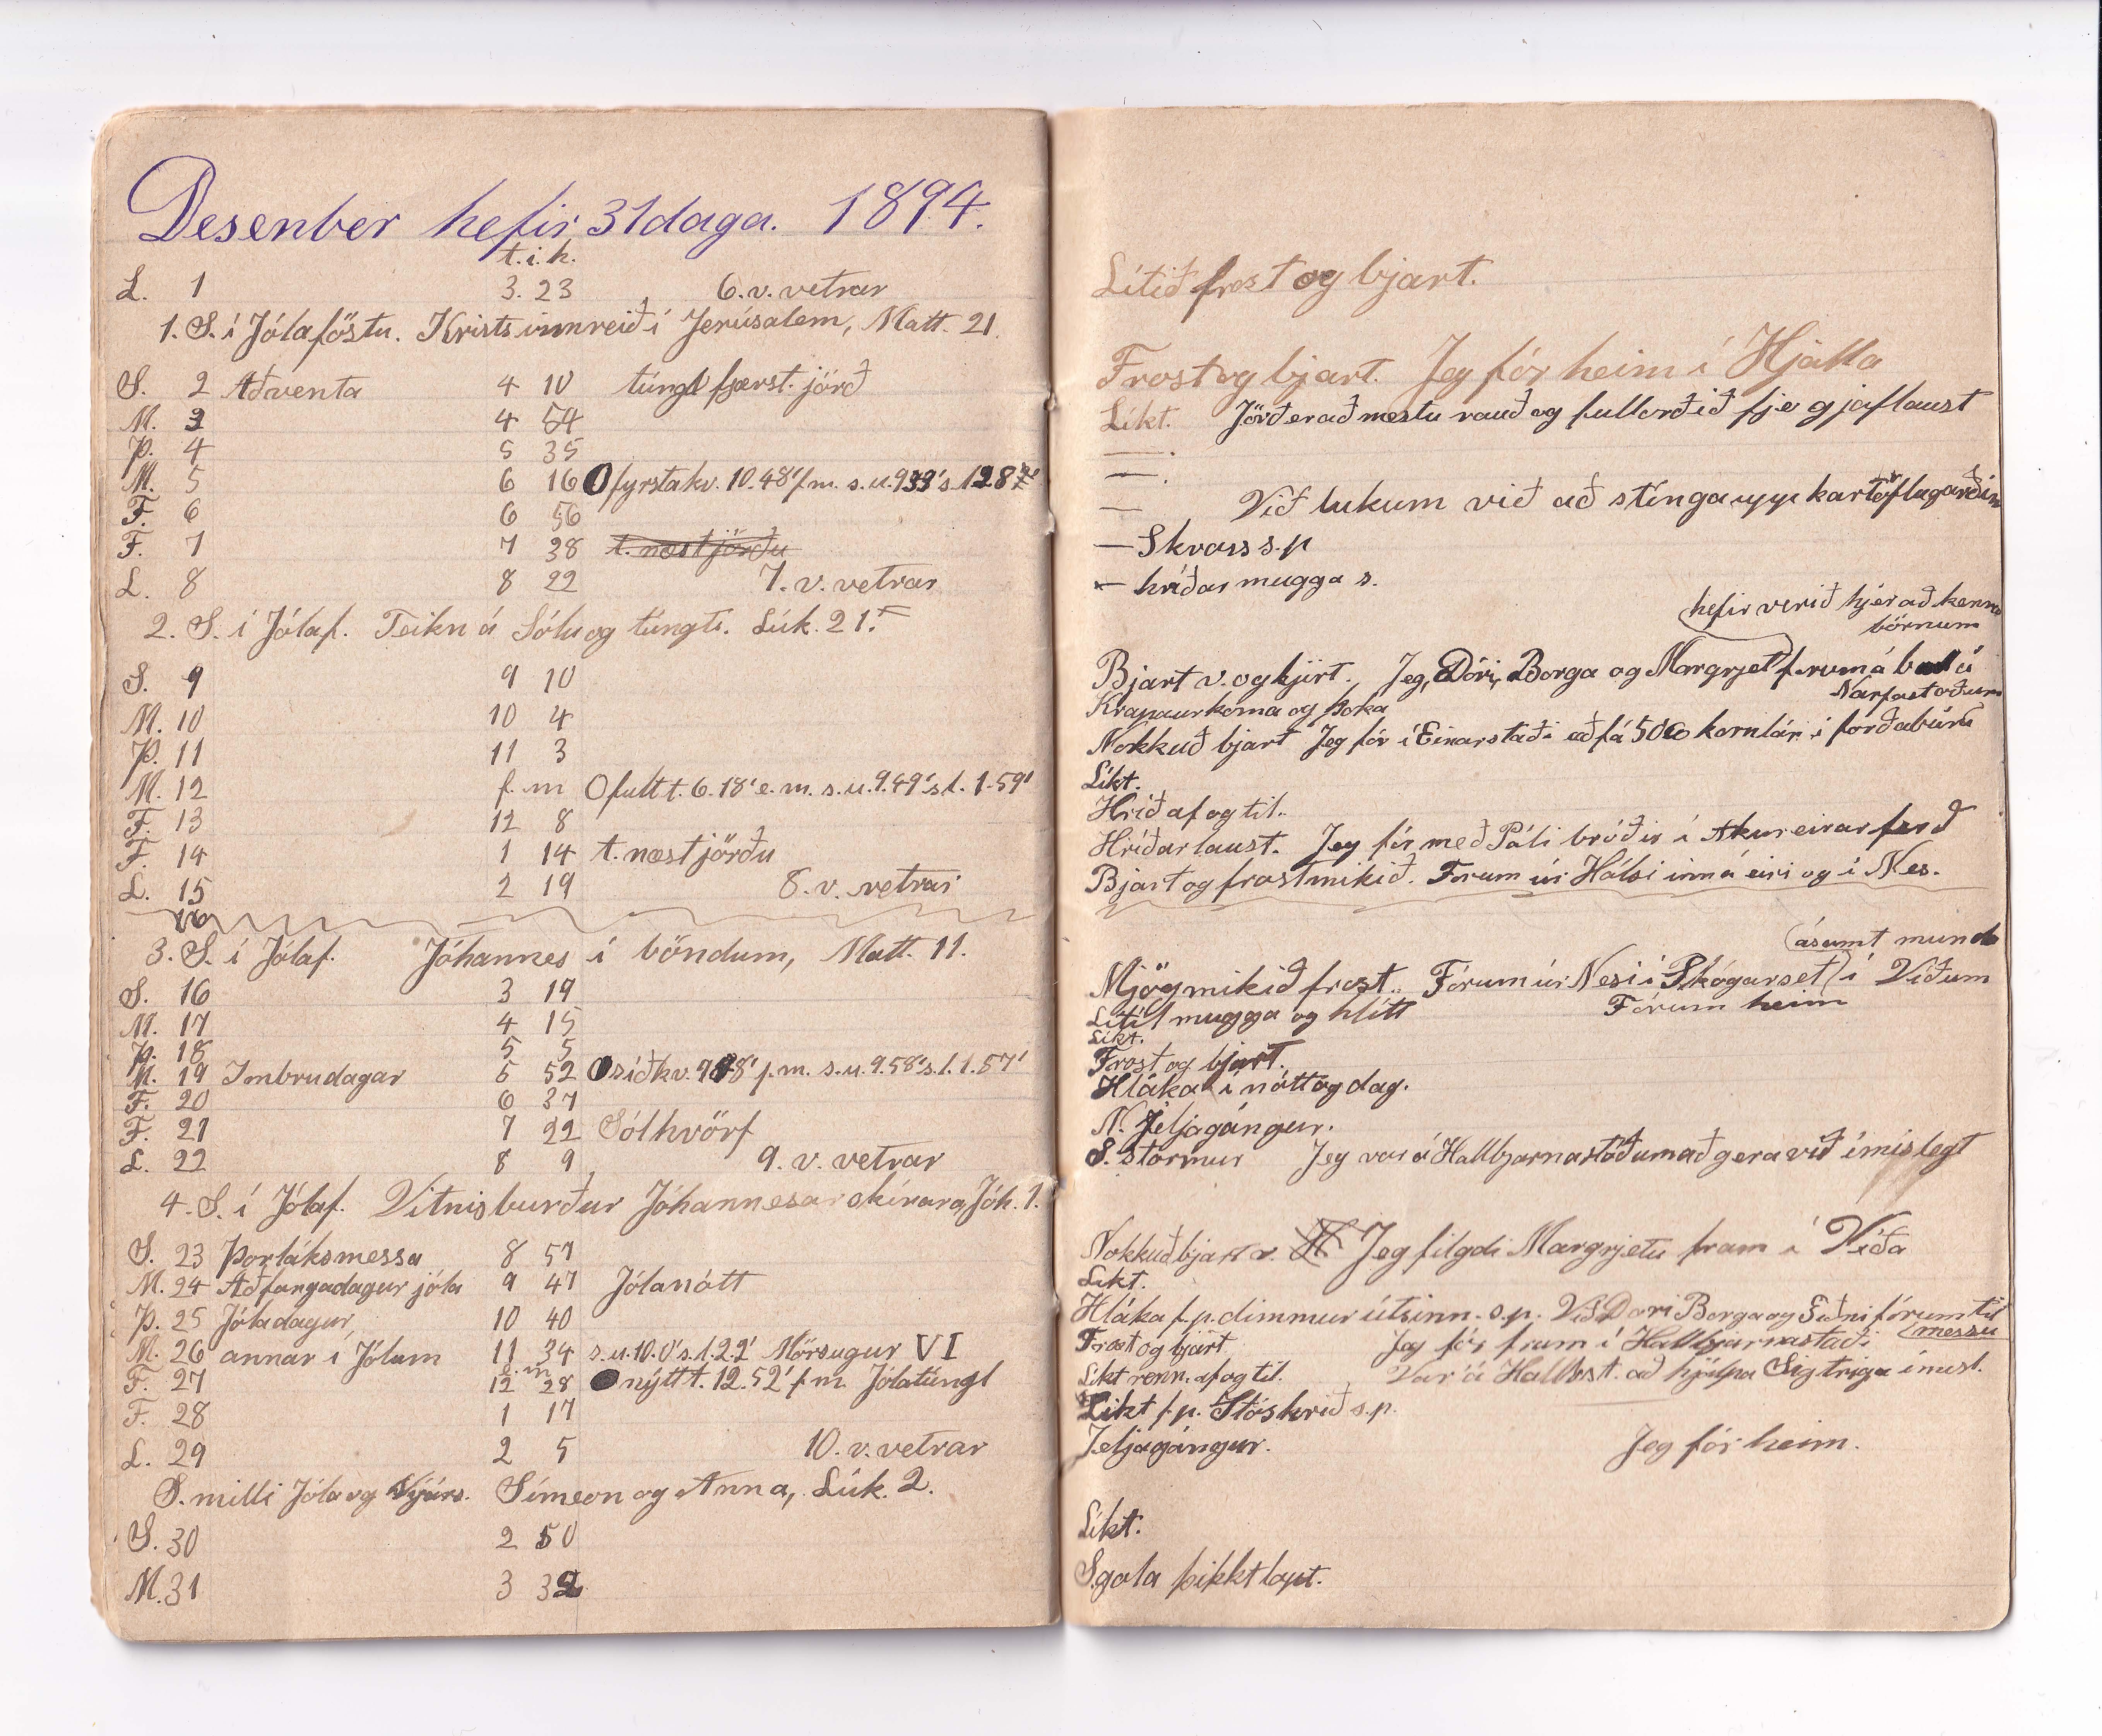 Desenber hefir 31 daga. 1894.
t. i. h.
L. 1 3. 23 6. v. vetrar
1. S. í Jólaföstu. Krists innreið í Jerúsalem, Matt. 21.
S. 2 Aðventa 4 10 túngl fjærst. jörð
M. 3 4 54
Þ. 4 5 35
M. 5 6 16 fyrsta kv. 10.48' f m. s. u. 9
F. 6 6 56
F. 7 7 38 t. næst jörðu
L. 8 8 22 7. v. vetrar
2. S. í Jólaf. Teikn á Sólu og túngli. Lúk. 21.
S. 9 9 10
M. 10 10 4
Þ. 11 11 3
M. 12 f. m fullt t. 6.18' e. m. s. u. 9.49' s l. 1.59'
F. 13 12 8
F. 14 1 14 t. næst jörðu
L. 15 2 19 8. v. vetrar
3. S. í Jólaf. Jóhannes í böndum, Matt. 11.
S. 16 3 19
M. 17 4 15
Þ. 18 5 5
M. 19 Imbrudagar 5 52 síð kv. f. m. s. u. 9.58' s. l. 1.57'
F. 20 6 37
F. 21 7 22 Sólhvörf
L. 22 8 9 9. v. vetrar
4. S. í Jólaf. Vitnisburður Jóhannesar skírara, Jóh. 1.
S. 23 Þorláksmessa 8 57
M. 24 Aðfangadagur jóla 9 47 Jólanótt
Þ. 25 Jóladagur 10 40
M. 26 annar í Jólum 11 34 s. u. 10.0' s. l. 2.2' Mörsugur VI
e. m
F. 27 12 28 nýtt t. 12.52' f m Jólatúngl
F. 28 1 17
L. 29 2 5 10. v. vetrar
S. milli Jóla og Nýárs. Símeon og Anna, Lúk. 2.
S. 30 2 50
M. 31 3 32
Lítið frost og bjart.
Frost og bjart. Jeg fór heim í Hjalla
Líkt. Jörð er að mestu rauð og fullorðið fje gjaflaust
— .
— .
— Við lukum við að stínga upp kartöflugarðin
— Skvass s. p
— hríðar mugga s.
hefir verið hjer að kenna
börnum
Bjart v. og kjirt. Jeg, Dóri, Borga og Margrjet forum á ball á
Narfastöðum
Krapaurkoma og þoka
Nokkuð bjart Jeg fór í Einarstaði að fá 50 kornlán í forðabúrið
Líkt.
Hríð af og til.
Hríðarlaust. Jeg fór með Páli bróðir í Akureirarferð
Bjart og frostmikið. Forum úr Hálsi inná eiri og í Nes.
(ásamt mund
Mjög mikið frost. Fórum úr Nesi í Skógarsel í Viðum
Lítil mugga og hlítt Fórum heim
Líkt.
Frost og bjart.
Hláka í nótt og dag.
N. Jeljagángur.
S. stormur Jeg var á Hallbjarnastöðum að gera við ímislegt
Nokkuð bjart v. Jeg filgdi Margrjetu fram í Viða
Líkt.
Hláka f. p. dimmur útsinn. s. p. Við Dori Borga og Guðni fórum til
(messu
Frost og bjart Jeg fór fram í Hallbjarnastaði
Líkt renn. af og til. Var á Hallbst. að hjálpa Sigtriga ímisl.
Líkt f. p. Stórhrið s. p.
Jeljagángur. Jeg fór heim.
Líkt.
S. gola þikkt lopt.